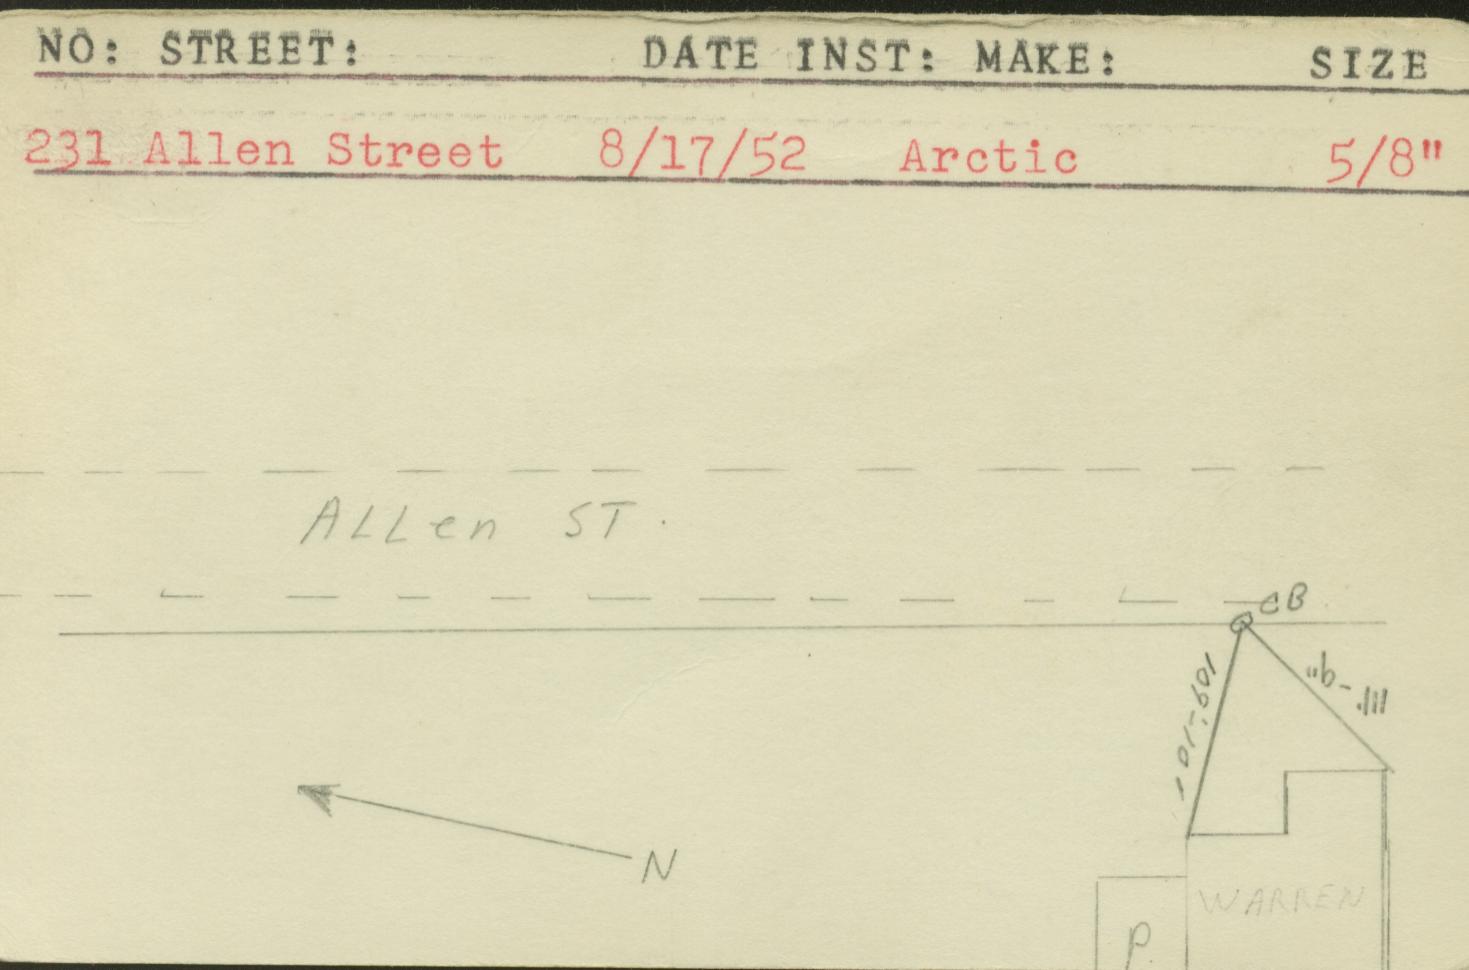 NO: STREET: DATE INST: MAKE: SIZE
231 Allen Street 8/17/52 Arctic 5/8"
ALLen ST.
CB
111'-9"
N
WARREN
P.